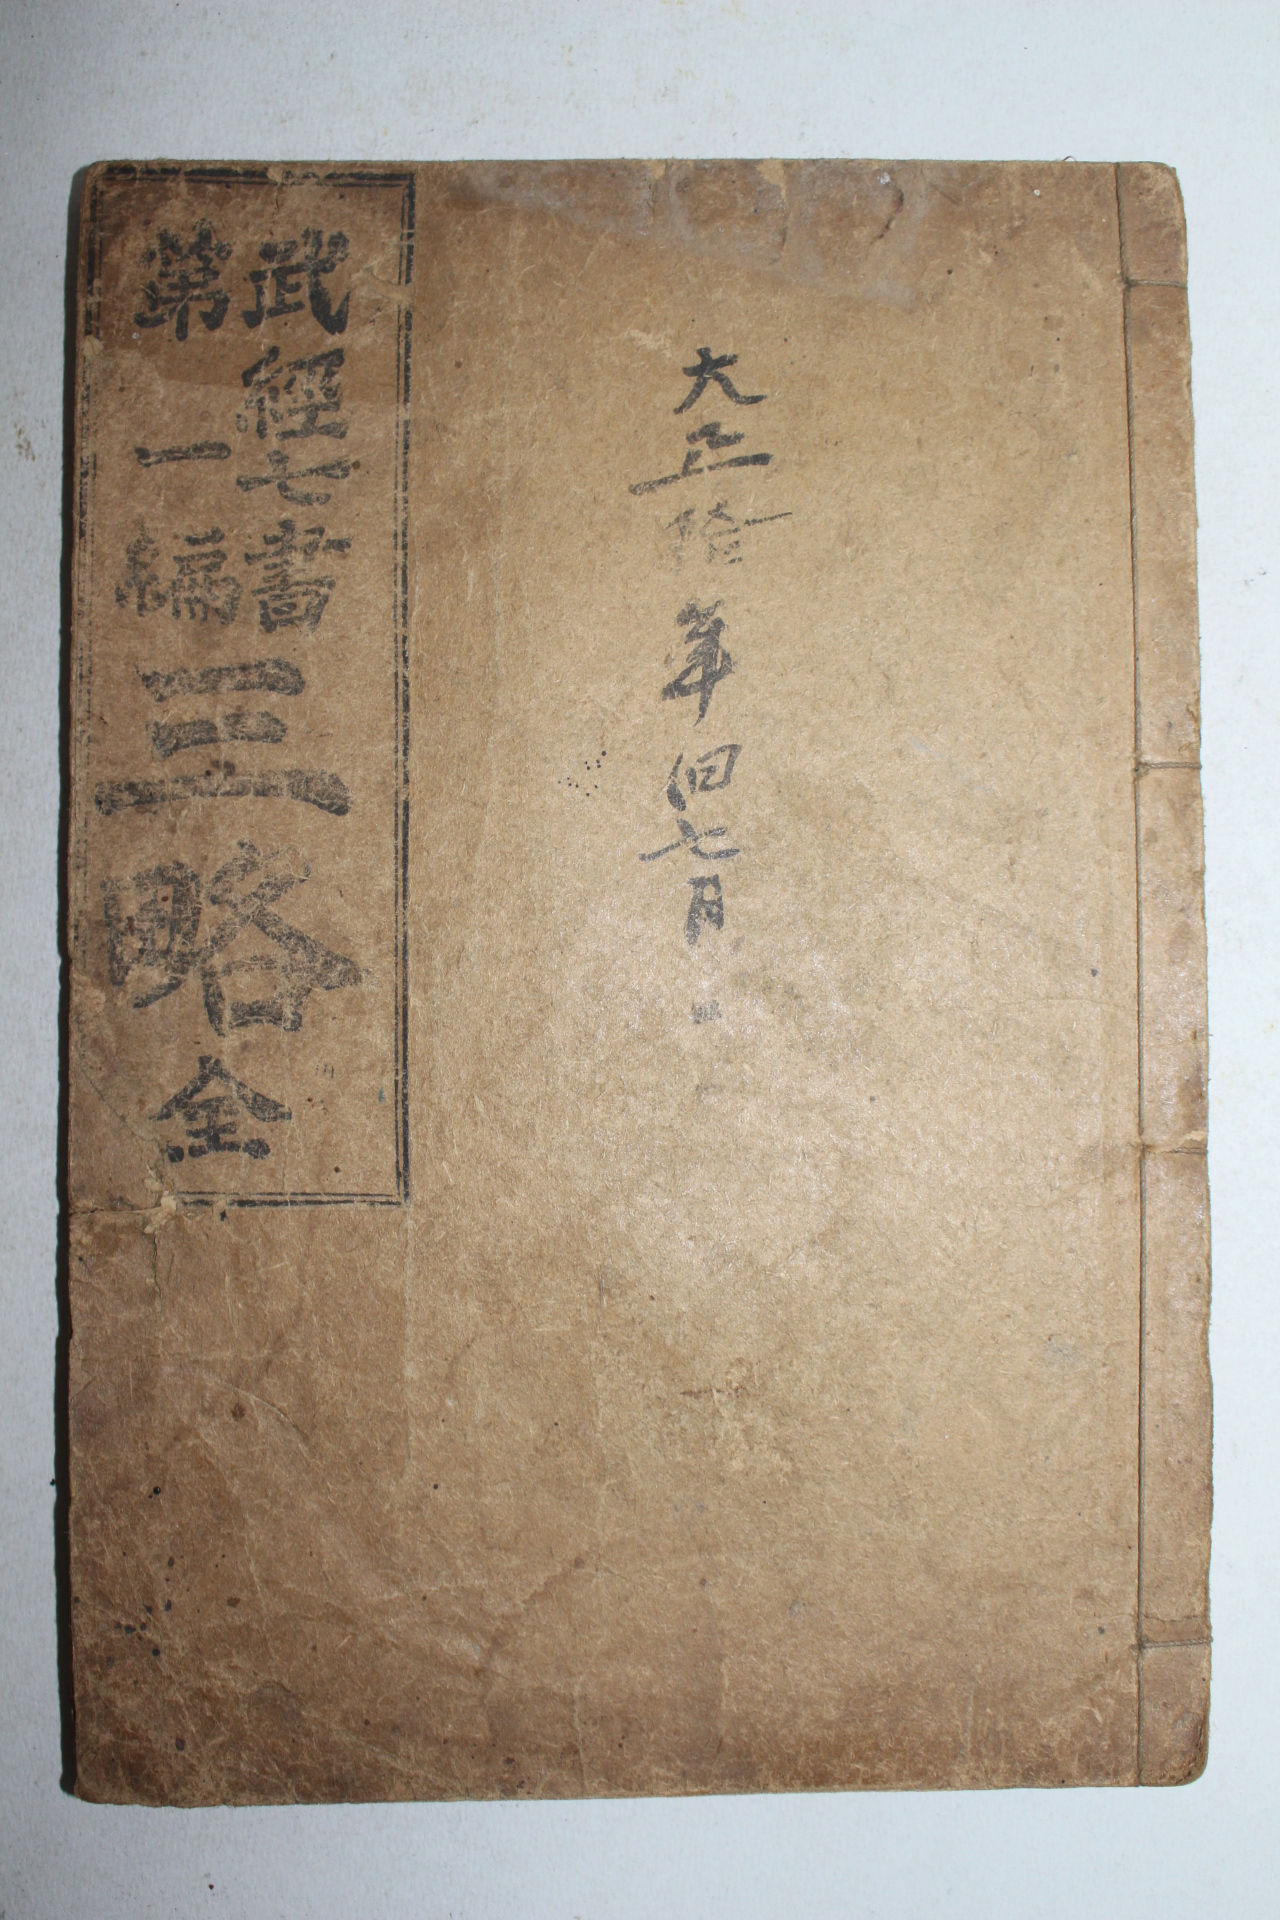 大正拾年旧七月
武經七書
第一編
三略全